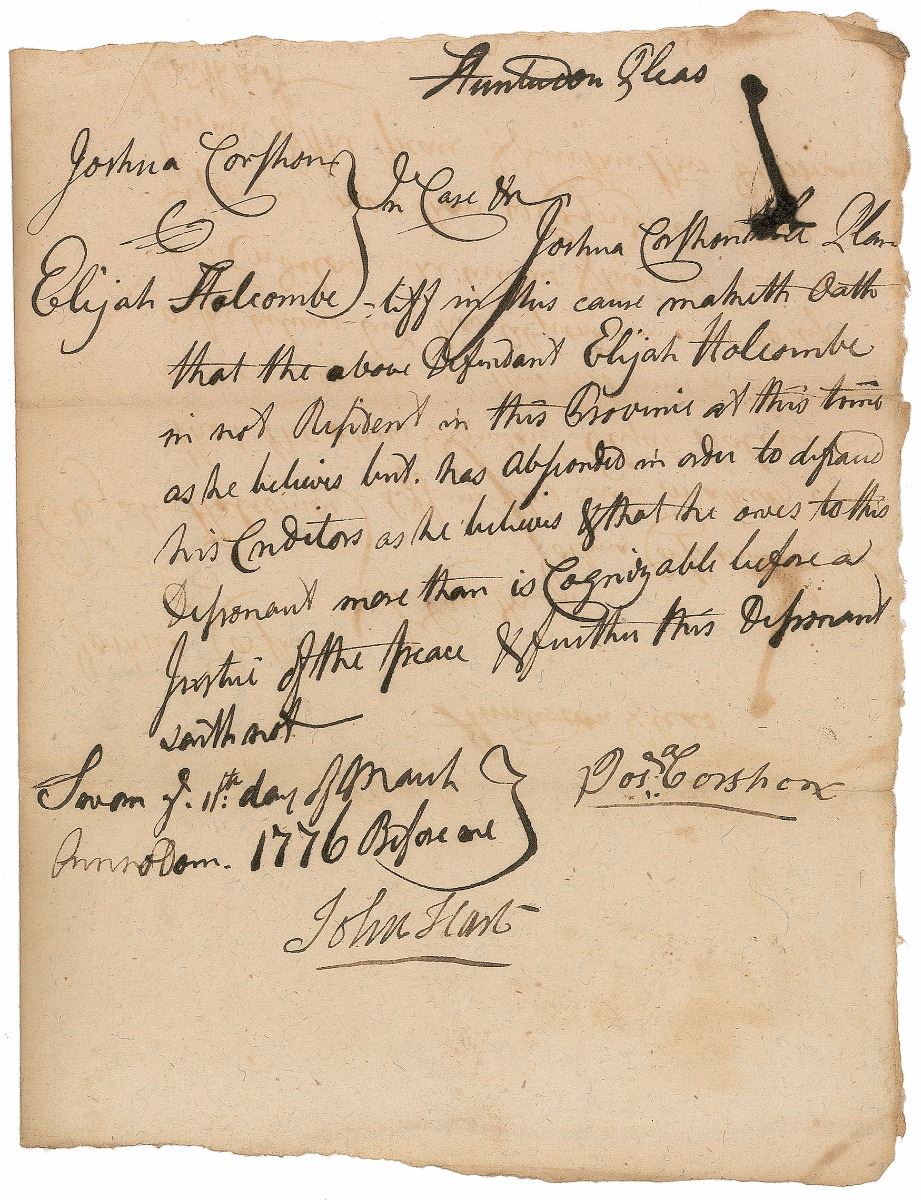 Hunterdon Pleas
Joshua Corshon
In Case &c
Joshua Corshon the Plain
Elijah Holcombe -tiff in this cause maketh Oath
that the above Defendant Elijah Holcombe
in not Resident in this Province at this time
as he believes but. has absconded in order to defraud
his Creditors as he believes & that he owes to this
Deponant more than is Cognizable before a
Justice of the Peace & further this Deponant
saith not
Sworn ye. 11th. day of March
Jos.a Corshon
Anno Dom. 1776 Before me
John Hart